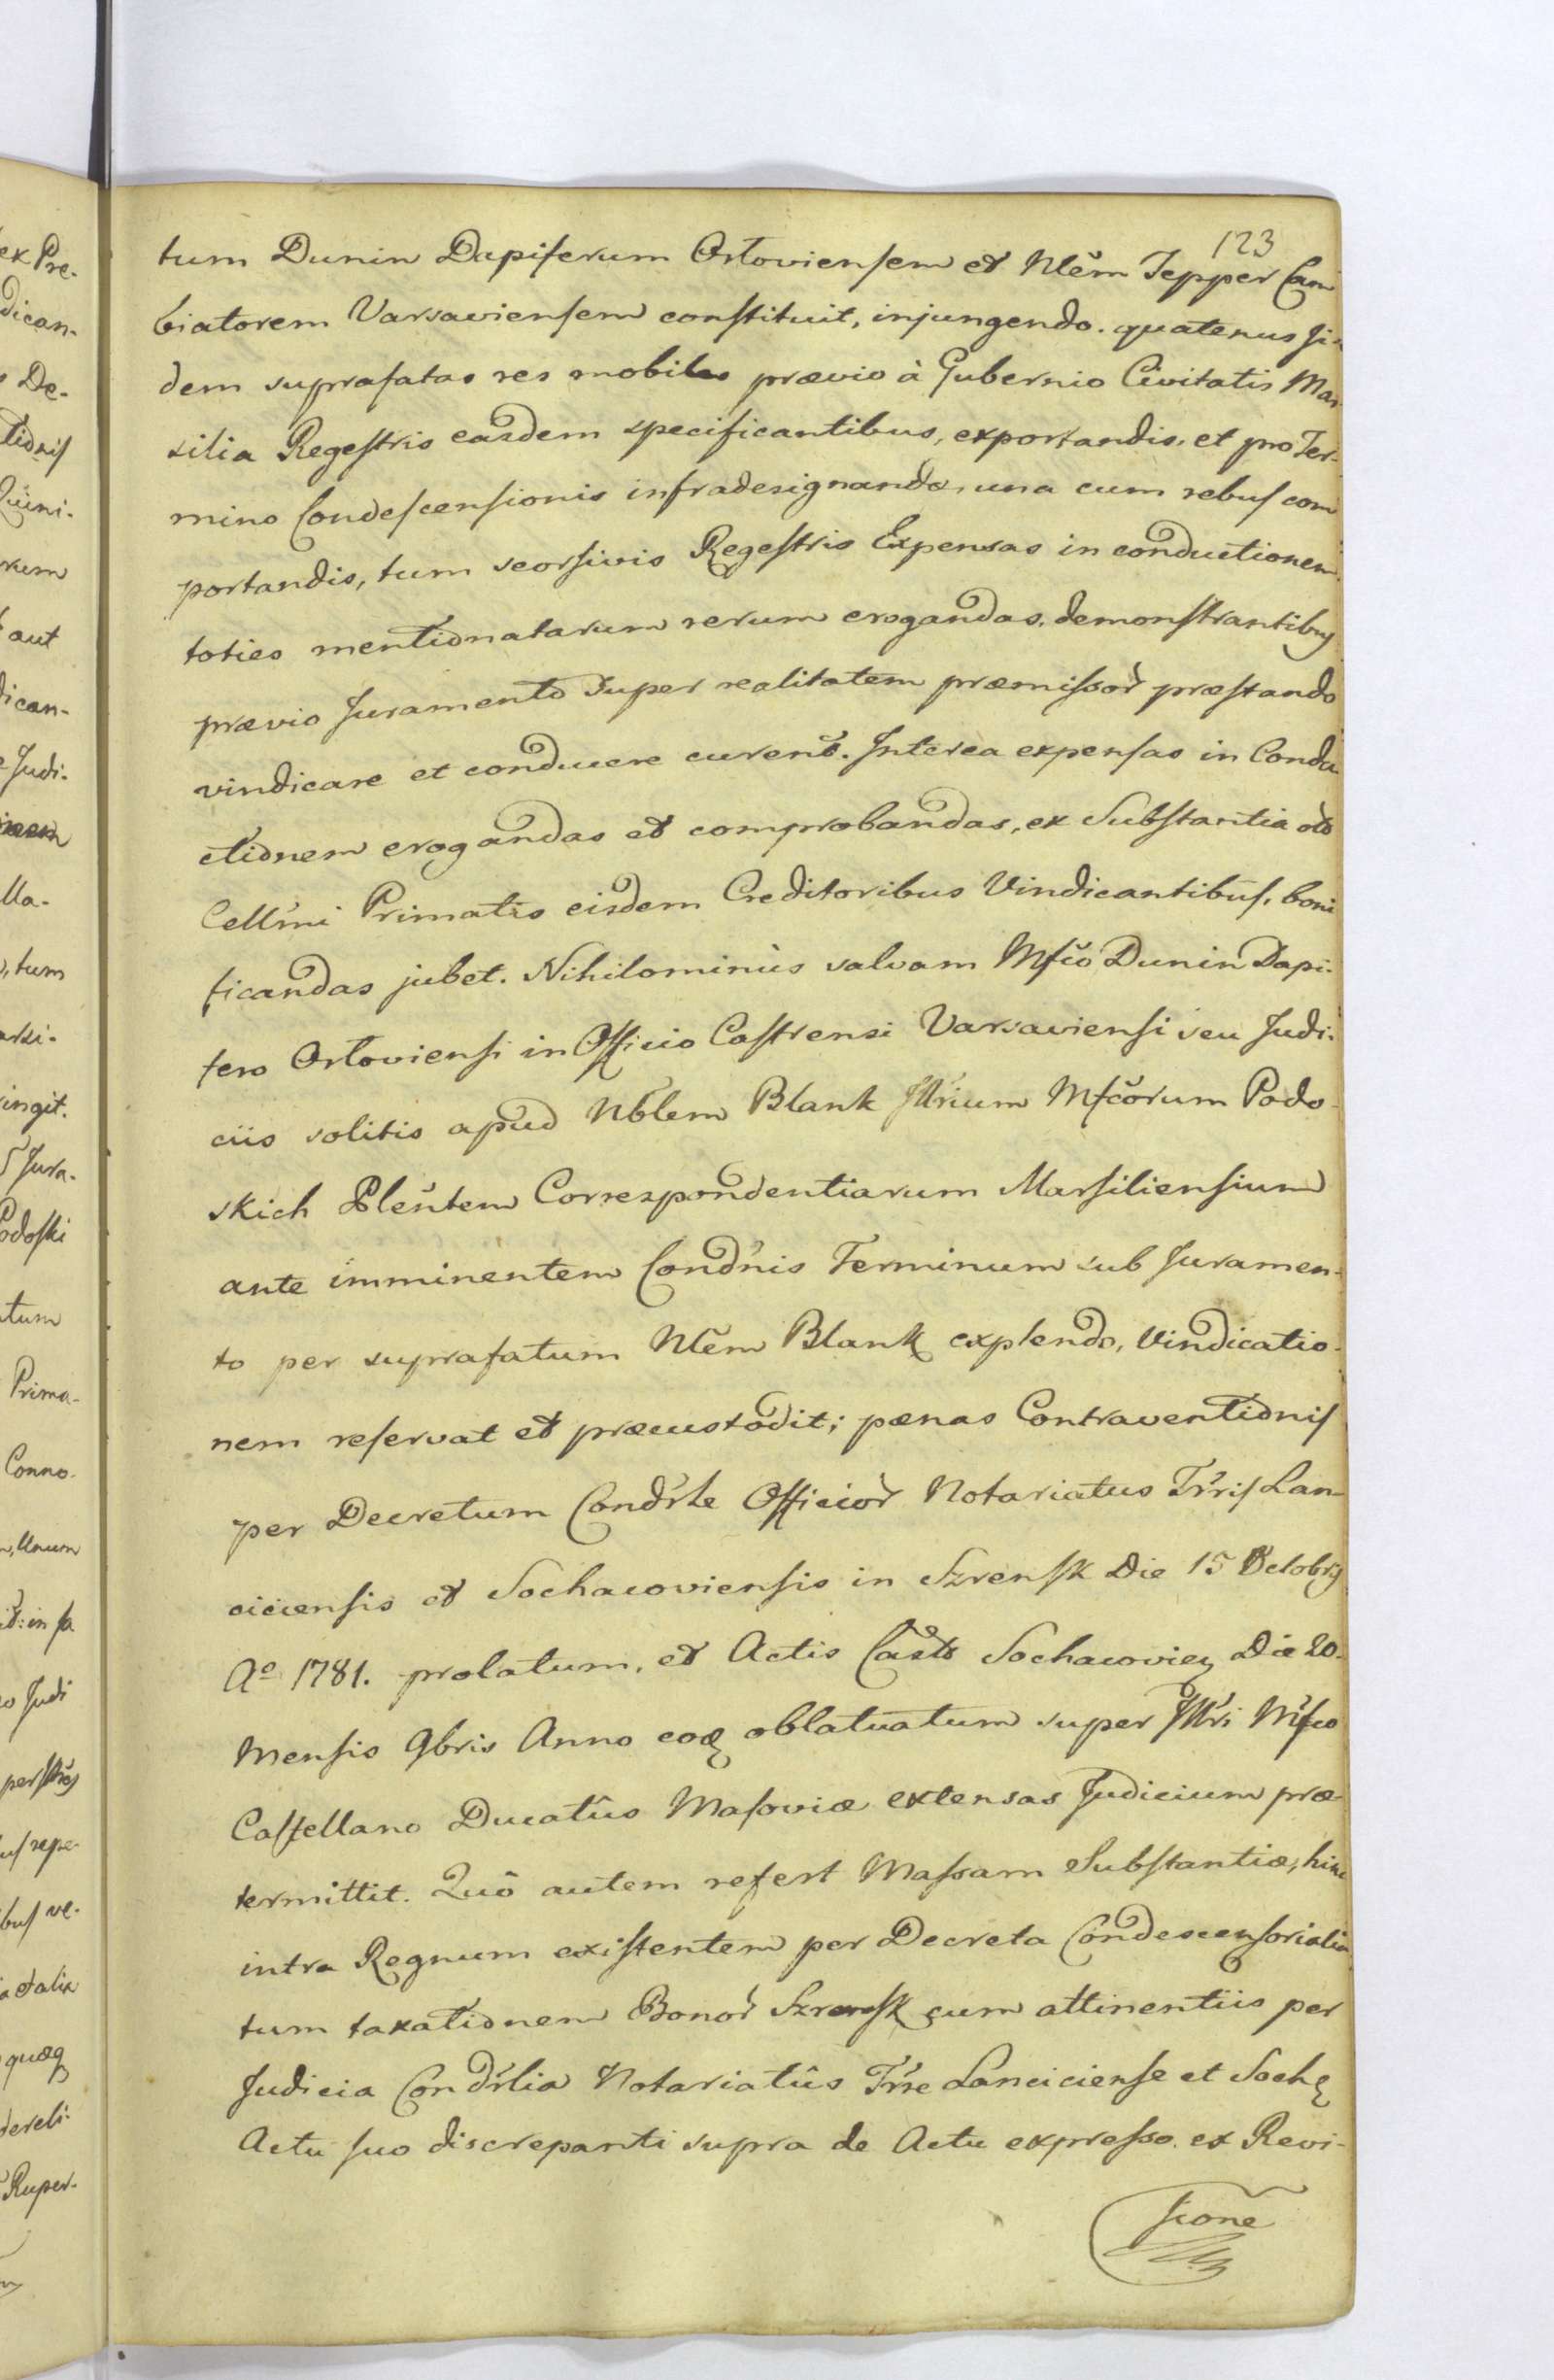 123
tum Dunin Dapiferum Orłoviensem et Nlẽm Tepper Cam
biatorem Varsaviensem constituit, injungendo. quatenus ji-
dem suprafatas res mobiles prævio à Gubernio Civitatis Mar-
silia Regestris easdem specificantibus, exportandis, et pro Ter-
mino Condescensionis infradesignando, una cum rebus com
portandis, tum seorsivis Regestris Expensas in conductionem
toties mentionatarum rerum erogandas, demonstrantibus
prævio Juramento super realitatem præmissor̀ præstando
vindicare et conducere curent. Interea expensas in Condu-
ctionem erogandas et comprobandas, ex Substantia olo
Cellm̃i Primatis eisdem Creditoribus Vindicantibus, boni
ficandas jubet. Nihilominùs salvam Mfco Dunin Dapi-
fero Orłoviensi in Officio Castrensi Varsaviensi seu Judi-
ciis solitis apud Nb̃lem Blank Jllr̃ium Mfcõrum Podo-
skich Pleñtem Correspondentiarum Marsiliensium
ante imminentem Cond̃nis Terminum sub Juramen-
to per suprafatum Nlẽm Blank explendo, Vindicatio-
nem reservat et præcustodit; pænas Contraventionis
per Decretum Condr̃le Officior̀ Notariatus Tr̃ris Lan-
ciciensis et Sochacoviensis in Szrensk Die 15 Octobris
Aº 1781. prolatum, et Actis Castr̃ Sochacovien Die 20
Mensis 9bris Anno eoq oblatuatum super Jllr̃i Mfco
Castellano Ducatûs Masoviæ extensas Judicium præ-
termittit. Quô autem refert Massam Substantiæ, hinc
intra Regnum existentem per Decreta Condescensorialia
tum taxationem Bonor̀ Szrensk cum attinentiis per
Judicia Condr̃lia Notariatûs Tr̃re Lanciciense et Soch
Actu suo discrepanti supra de Actu expresso. ex Revi-
sione